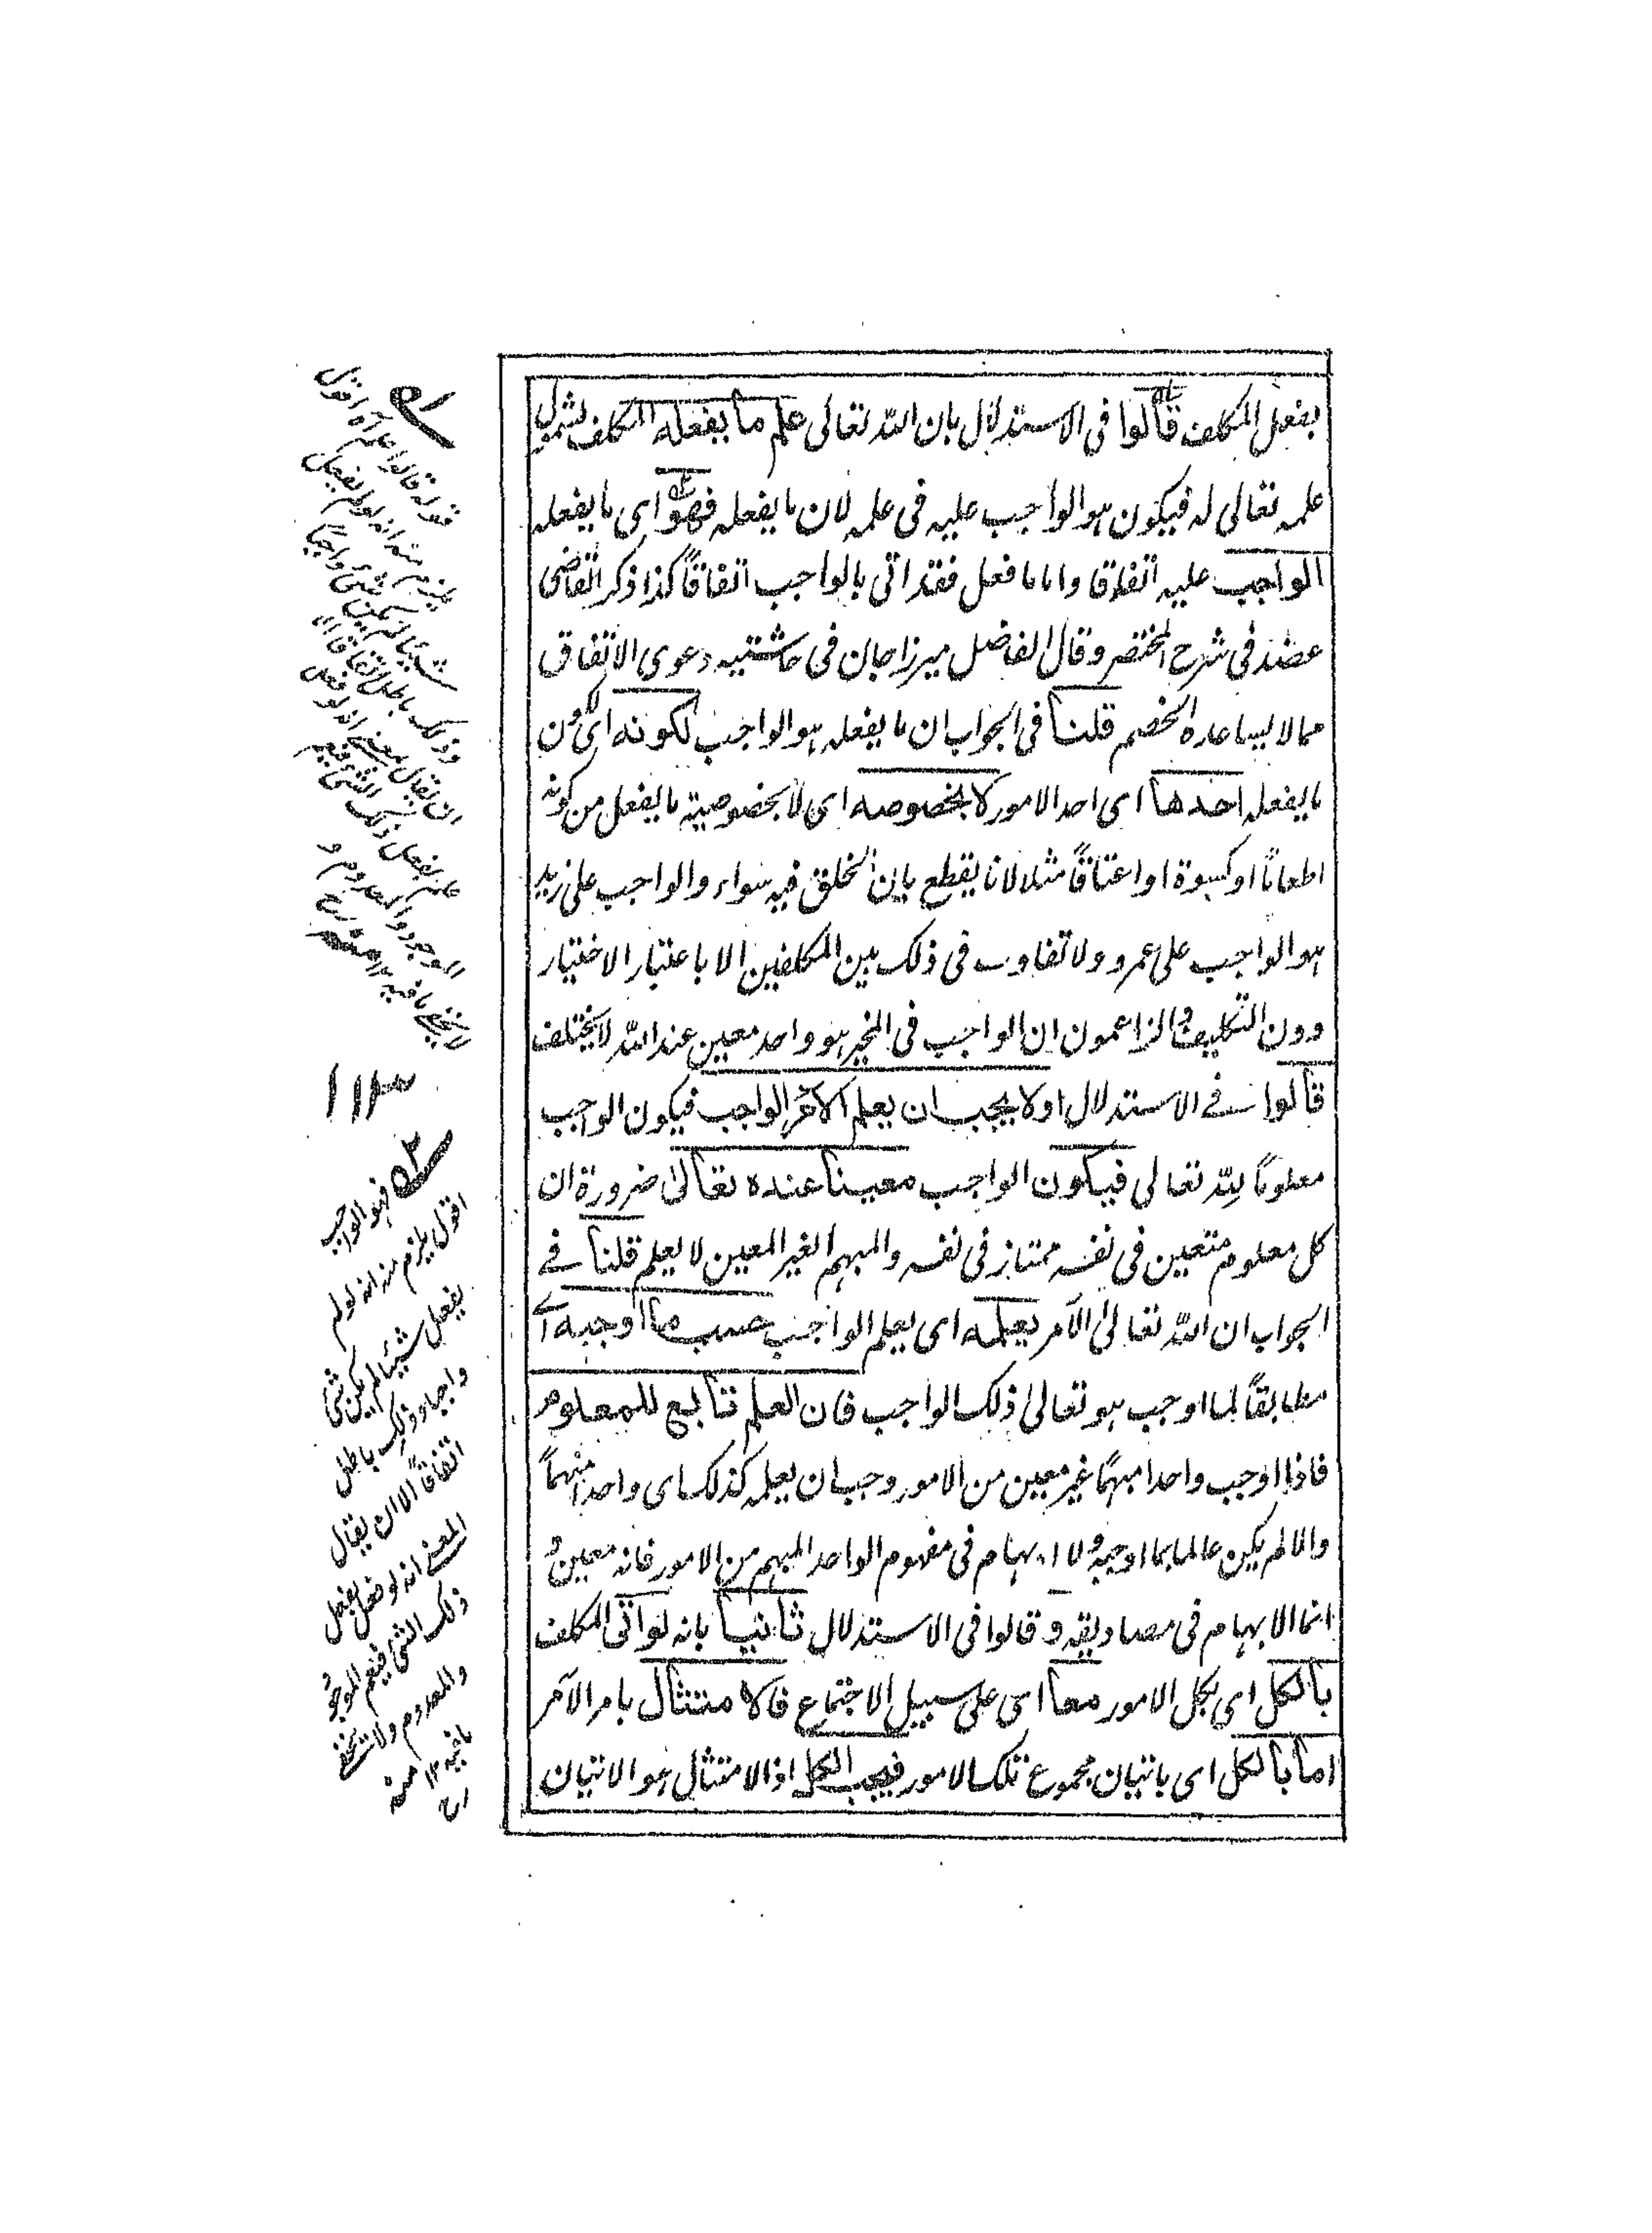 بفعل المكلف قالوا فى الاستدلال بان الله تعالى علم ما يفعله المكلف لشمول
علمه تعالى له فيكون هو الواجب عليه فى علمه لان ما يفعله فهو اى ما يفعله
الواجب عليه اتفاقا واما ما فعل فقد اتى بالواجب اتفاقاً كذا ذكر القاضى
عضد فى شرح المختصر وقال الفاضل ميرزا جان فى حاشتيه دعوى الاتفاق
مما لا يساعده الخصم قلنا فى الجواب ان ما يفعله هو الواجب لكونه اى لكون
ما يفعله احدها اى احد الامور لا بخصوصه اى لا بخصوصية ما يفعل من كونه
اطعاماً او كسوة او اعتاقاً مثلا لانا يقطع بان الخلق فيه سواء والواجب على زيد
هو الواجب على عمرو ولا تفاوت فى ذلك بين المكلفين الا باعتبار الاختيار
دون التكليف والزاعمون ان الواجب فى المخير هو واحد معين عند الله لا يختلف
قالوا فى الاستدلال اولا يجب ان يعلم الآمر الواجب فيكون الواجب
معلوماً لله تعالى فيكون الواجب معينا عنده تعالى ضرورة ان
كل معلوم متعين فى نفسه ممتاز فى نفسه والمبهم الغير المعين لا يعلم قلنا فى
الجواب ان الله تعالى الآمر يعلمه اى يعلم الواجب حسب ما اوجبه اى
مطابقاً لما اوجب هو تعالى ذلك الواجب فان العلم تابع للمعلوم
فاذا اوجب واحدا مبهمًا غير معين من الامور وجب ان يعلمه كذلك اى واحدا مبهماً
والا لم يكن عالما بما اوجبه ولا ابهام فى مفهوم الواحد المبهم من الامور فانه معين و
انما الابهام فى مصاديقه و قالوا فى الاستدلال ثانيا بانه لو اتى المكلف
بالكل اى بكل الامور معا اى على سبيل الاجتماع فالامتثال بامر الآمر
اما بالكل اى باتيان مجموع تلك الامور فيجب الكل اذ الامتثال هو الاتيان
قوله قالوا علم آه اقول
يلزم منه انه لو لم يفعل
شيئا لم يكن شئ واجباً
وذلك باطل اتفاقا الا
ان يقال المعنى انه لو فعل
يفعل ذلك الشئ فيعم
الموجود والمعدوم و
لا يخفى ما فيه ١٢ منه رح
١١٣
٥٢ فهو الواجب
اقول يلزم منه انه لو لم
يفعل شيئا لم يكن شئ
واجبا وذلك باطل
اتفاقاً الا ان يقال
المعنى انه لو فعل يفعل
ذلك الشئ فيعم الموجود
والمعدوم ولا يخفى
ما فيه ١٢ منه
رح